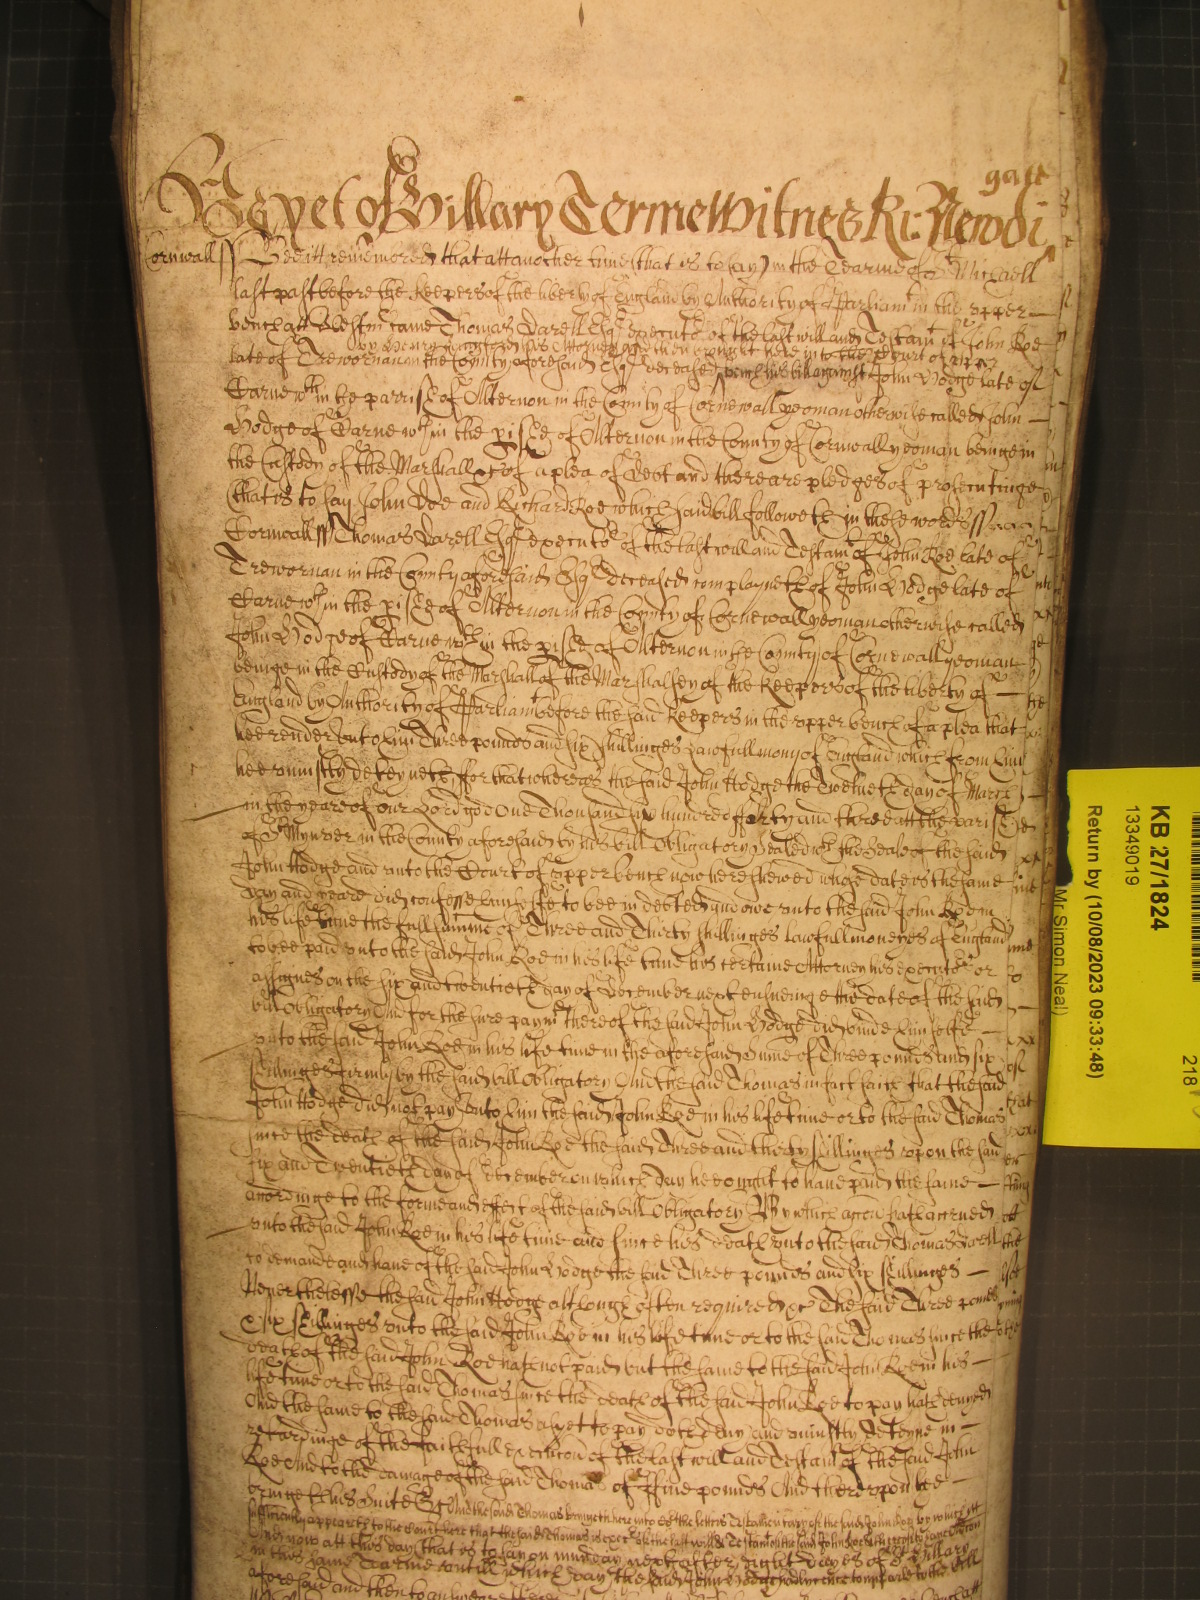 As yet of Hillary Terme Witnes Ri: Newdi
gate
Cornwall ss Bee itt remembred that att another time (that is to say) in the Tearme of St Michaell
last past before the Keepers of the liberty of England by Authority of Parliamt in the upper
bench att Westmr came Thomas Darell Esqr executor of the last will and Testamt of John Roe
by Henry his Attorney and then brought here into the Court of upper
late of Trewornan in the County aforesaid Esqr deceased bench his bill against John Hodge late of
Carne wthin the parrish of Alternon in the County of Cornewall yeoman otherwise called John
Hodge of Carne wthin the pish of Alternon in the County of Cornwall yeoman beinge in
the Custody of the Marshall &c of a plea of Debt and there are pledges of prosecutinge
that is to say John Doe and Richard Roe which said bill followeth in these words ss
Cornwall ss Thomas Darell Esqr executor of the last will and Testamt of John Roe late of
Trewornan in the County aforesaid Esqr deceased complayneth of John Hodge late of
Carne wthin the pish of Alternon in the County of Cornewall yeoman otherwise called
John Hodge of Carne wthin the pish of Alternon in the County of Cornewall yeoman
beinge in the Custody of the Marshall of the Marshalsey of the Keepers of the liberty of
England by Authority of Parliamt before the said Keepers in the upper bench of a plea that
hee render unto him Three pounds and six shillinges lawfull mony of England which from him
hee uniustly deteyneth for that whereas the said John Hodge the Twelueth day of March
in the yeare of our Lord god One Thousand six hundred fforty and three att the parish
of St Mynver in the County aforesaid by his bill Obligatory Sealed wth the Seale of the said
John Hodge and unto the Court of upper bench now here shewed whose date is the same
day and yeare did confesse himselfe to bee indebted and owe unto the said John Roe in
his life time the full summe of Three and Thirty shillinges lawfull moneyes of England
to bee paid unto the said John Roe in his life time his certaine Attorney his executors or
assignes on the six and twentieth day of December next ensueinge the date of the said
bill Obligatory And for the sure paymt thereof the said John Hodge did binde himselfe
unto the said John Roe in his life time in the aforesaid summe of Three pounds and six
shillinges firmly by the said bill Obligatory And the said Thomas in fact saith that the said
John Hodge did not pay unto him the said John Roe in his life time or to the said Thomas
since the death of the said John Roe the said Three and thirty shillinges upon the said
six and Twentieth day of December on which day he ought to have paid the same
accordinge to the forme and effect of the said bill Obligatory By which accon hath accrued
unto the said John Roe in his life time and since his death unto the said Thomas Darell
to demande and have of the said John Hodge the said Three pounds and six shillinges
Neverthelesse the said John Hodge althouge often required &c The said Three pounds
& six shillinges unto the said John Roe in his life time or to the said Thomas since the
death of the said John Roe hath not paid but the same to the said John Roe in his
life time or to the said Thomas since the death of the said John Roe to pay hath denyed
And the same to the said Thomas as yet to pay doth deny and uniustly deteyne in
retardinge of the faithfull execution of the last will and Testamt of the said John
Roe And to the damage of the said Thomas of ffive pounds And thereupon hee
bringeth his Suite &c And the said Thomas bringeth here into Court the letters Testamentary of the said John Roe by which itt
sufficiently appeareth to the Court here that the said Thomas is executor of the last will & Testamt of the said John Roe and thereof to have execucon
And now att this day (that is to say on munday next after eight dayes of St Hillary
in this same Tearme untill which day the said John Hodge had licence to imparle to the bill
aforesaid and then to answeare
KB 27/1824
13349019
Return by (10/08/2023 09:33:48)
Mr Simon Neal)
218